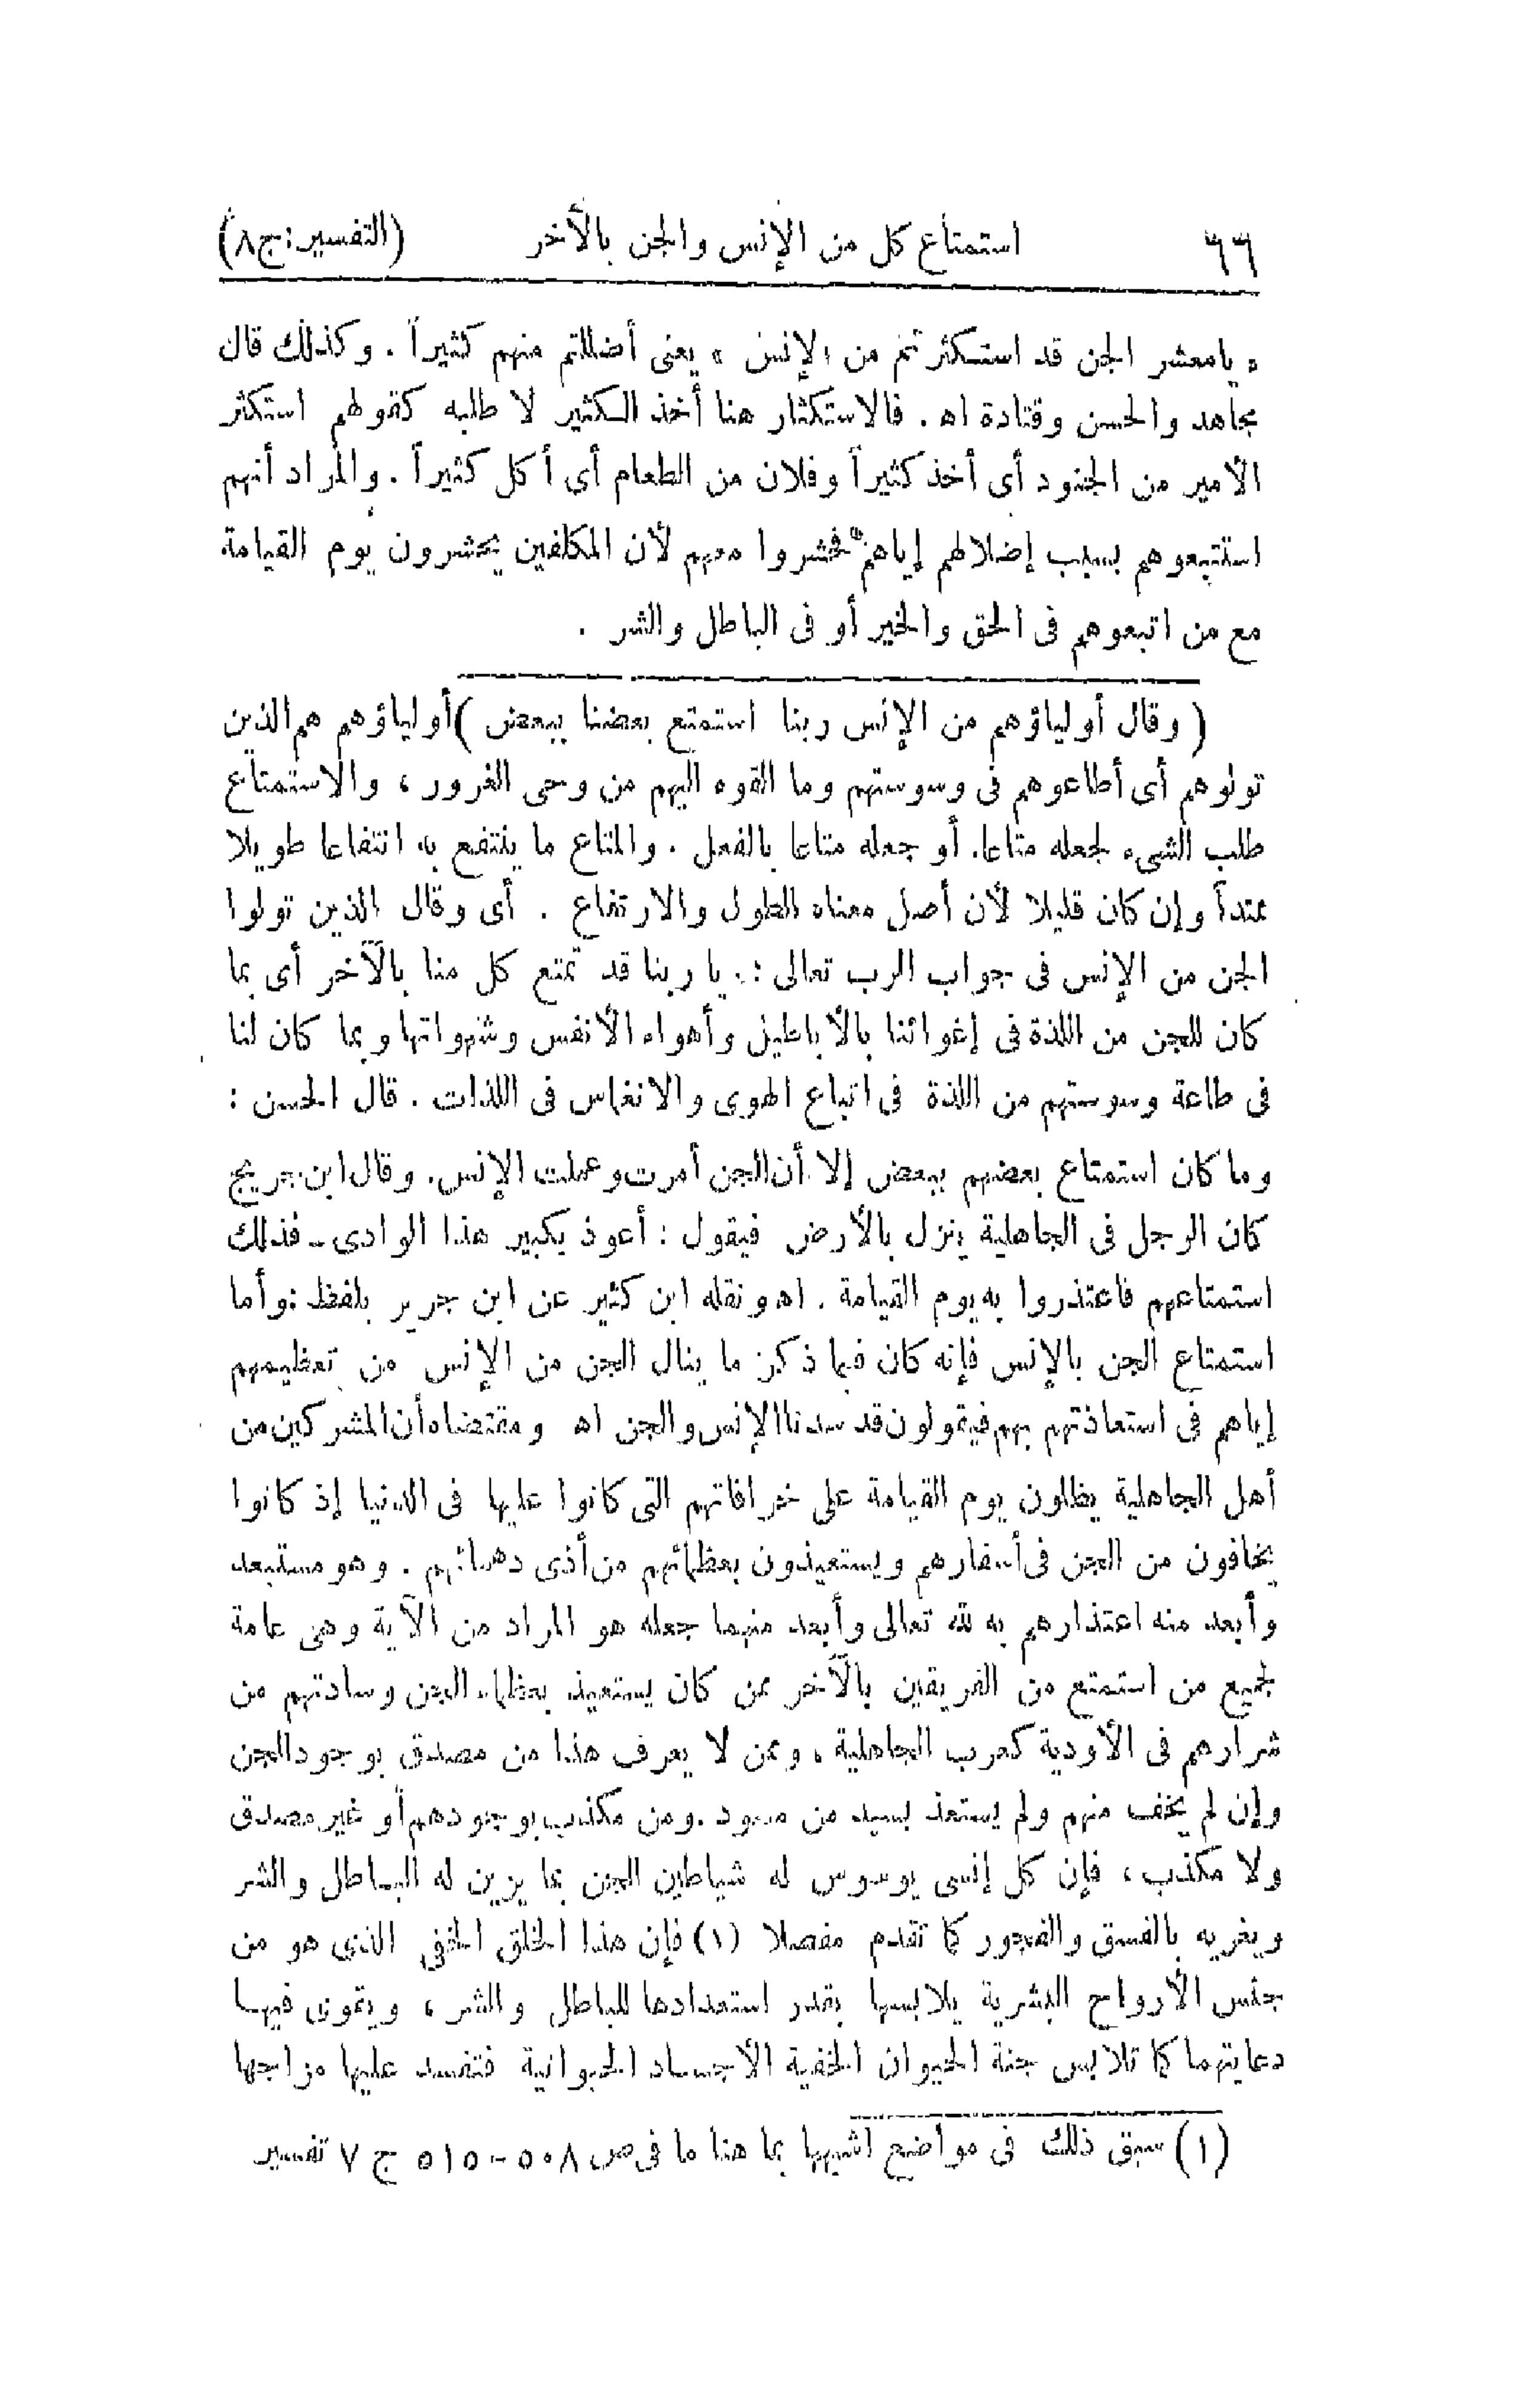 ٦٦ استمتاع كل من الإنس والجن بالآخر (التفسير: ج٨)
« يامعشر الجن قد استكثرتم من الإنس » يعنى أضللتم منهم كثيراً . وكذلك قال
مجاهد والحسن وقتادة اه . فالاستكثار هنا أخذ الكثير لا طلبه كقولهم استكثر
الأمير من الجنود أى أخذ كثيراً وفلان من الطعام أى أكل كثيراً . والمراد أنهم
استتبعوهم بسبب إضلالهم إياهم فحشروا معهم لأن المكلفين يحشرون يوم القيامة
مع من اتبعوهم فى الحق والخير أو فى الباطل والشر .
( وقال أولياؤهم من الإنس ربنا استمتع بعضنا ببعض ) أولياؤهم هم الذين
تولوهم أى أطاعوهم فى وسوستهم وما القوه اليهم من وحى الغرور ، والاستمتاع
طلب الشىء لجعله متاعا. أو جعله متاعا بالفعل . والمتاع ما ينتفع به انتفاعا طويلا
ممتداً وإن كان قليلا لأن أصل معناه الطول والارتفاع . أى وقال الذين تولوا
الجن من الإنس فى جواب الرب تعالى : يا ربنا قد تمتع كل منا بالآخر أى بما
كان للجن من اللذة فى إغوائنا بالأباطيل وأهواء الأنفس وشهواتها وبما كان لنا
فى طاعة وسوستهم من اللذة فى اتباع الهوى والانغماس فى اللذات . قال الحسن :
وما كان استمتاع بعضهم ببعض إلا أن الجن أمرت وعملت الإنس. وقال ابن جريج
كان الرجل فى الجاهلية ينزل بالأرض فيقول : أعوذ بكبير هذا الوادى ـ فذلك
استمتاعهم فاعتذروا به يوم القيامة . اه ونقله ابن كثير عن ابن جرير بلفظ : وأما
استمتاع الجن بالإنس فإنه كان فيما ذكر ما ينال الجن من الإنس من تعظيمهم
إياهم فى استعاذتهم بهم فيقولون قد سدنا الإنس والجن اه ومقتضاه أن المشركين من
أهل الجاهلية يظلون يوم القيامة على خرافاتهم التى كانوا عليها فى الدنيا إذ كانوا
يخافون من الجن فى أسفارهم ويستعيذون بعظمائهم من أذى دهمائهم . وهو مستبعد
وأبعد منه اعتذارهم به لله تعالى وأبعد منهما جعله هو المراد من الآية وهى عامة
لجميع من استمتع من الفريقين بالآخر ممن كان يستعيذ بعظماء الجن وسادتهم من
شرارهم فى الأودية كعرب الجاهلية ، وممن لا يعرف هذا من مصدق بوجود الجن
وإن لم يخف منهم ولم يستعذ بسيد من مسود . ومن مكذب بوجودهم أو غير مصدق
ولا مكذب ، فإن كل إنسى يوسوس له شياطين الجن بما يزين له الباطل والشر
ويغريه بالفسق والفجور كما تقدم مفصلا (١) فإن هذا الخلق الخفى الذى هو من
جنس الأرواح البشرية يلابسها بقدر استعدادها للباطل والشر ، ويقوى فيها
دعايتهما كما تلابس جنة الحيوان الخفية الأجساد الحيوانية فتفسد عليها مزاجها
(١) سبق ذلك فى مواضع اشبهها بما هنا ما فى ص ٥٠٨ - ٥١٥ ج ٧ تفسير